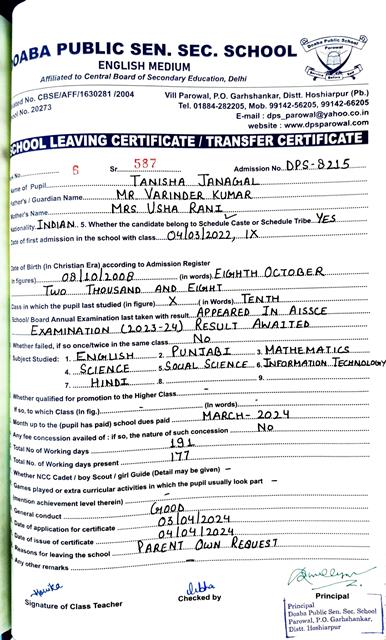 Doaba Public School
Parowal
DOABA PUBLIC SEN. SEC. SCHOOL
ENGLISH MEDIUM
Affiliated to Central Board of Secondary Education, Delhi
No. CBSE/AFF/1630281 /2004
No. 20273
Vill Parowal, P.O. Garhshankar, Distt. Hoshiarpur (Pb.)
Tel. 01884-282205, Mob. 99142-56205, 99142-66205
E-mail : dps_parowal@yahoo.co.in
website : www.dpsparowal.com
SCHOOL LEAVING CERTIFICATE / TRANSFER CERTIFICATE
No. 6 Sr. 587 Admission No. DPS-8215
Name of Pupil TANISHA JANAGAL
Father's / Guardian Name MR. VARINDER KUMAR
Mother's Name MRS. USHA RANI
Nationality INDIAN 5. Whether the candidate belong to Schedule Caste or Schedule Tribe YES
Date of first admission in the school with class 04/03/2022, IX
Date of Birth (in Christian Era) according to Admission Register
(in figures) 08/10/2008 (in words) EIGHTH OCTOBER
TWO THOUSAND AND EIGHT
Class in which the pupil last studied (in figure) X (in Words) TENTH
School/ Board Annual Examination last taken with result APPEARED IN AISSCE
EXAMINATION (2023-24) RESULT AWAITED
Whether failed, if so once/twice in the same class NO
Subject Studied: 1. ENGLISH 2. PUNJABI 3. MATHEMATICS
4. SCIENCE 5. SOCIAL SCIENCE 6. INFORMATION TECHNOLOGY
7. HINDI 8. - 9.
Whether qualified for promotion to the Higher Class -
If so, to which Class (In fig.) - (In words) -
Month up to the (pupil has paid) school dues paid MARCH-2024
Any fee concession availed of : if so, the nature of such concession NO
Total No. of Working days 191
Total No. of Working days present 177
Whether NCC Cadet / boy Scout / girl Guide (Detail may be given) -
Games played or extra curricular activities in which the pupil usually look part -
(mention achievement level therein) -
General conduct GOOD
Date of application for certificate 03/04/2024
Date of issue of certificate 04/04/2024
Reasons for leaving the school PARENT OWN REQUEST
Any other remarks -
Signature of Class Teacher
Checked by
Principal
Principal
Doaba Public Sen. Sec. School
Parowal, P.O. Garhshankar,
Distt. Hoshiarpur